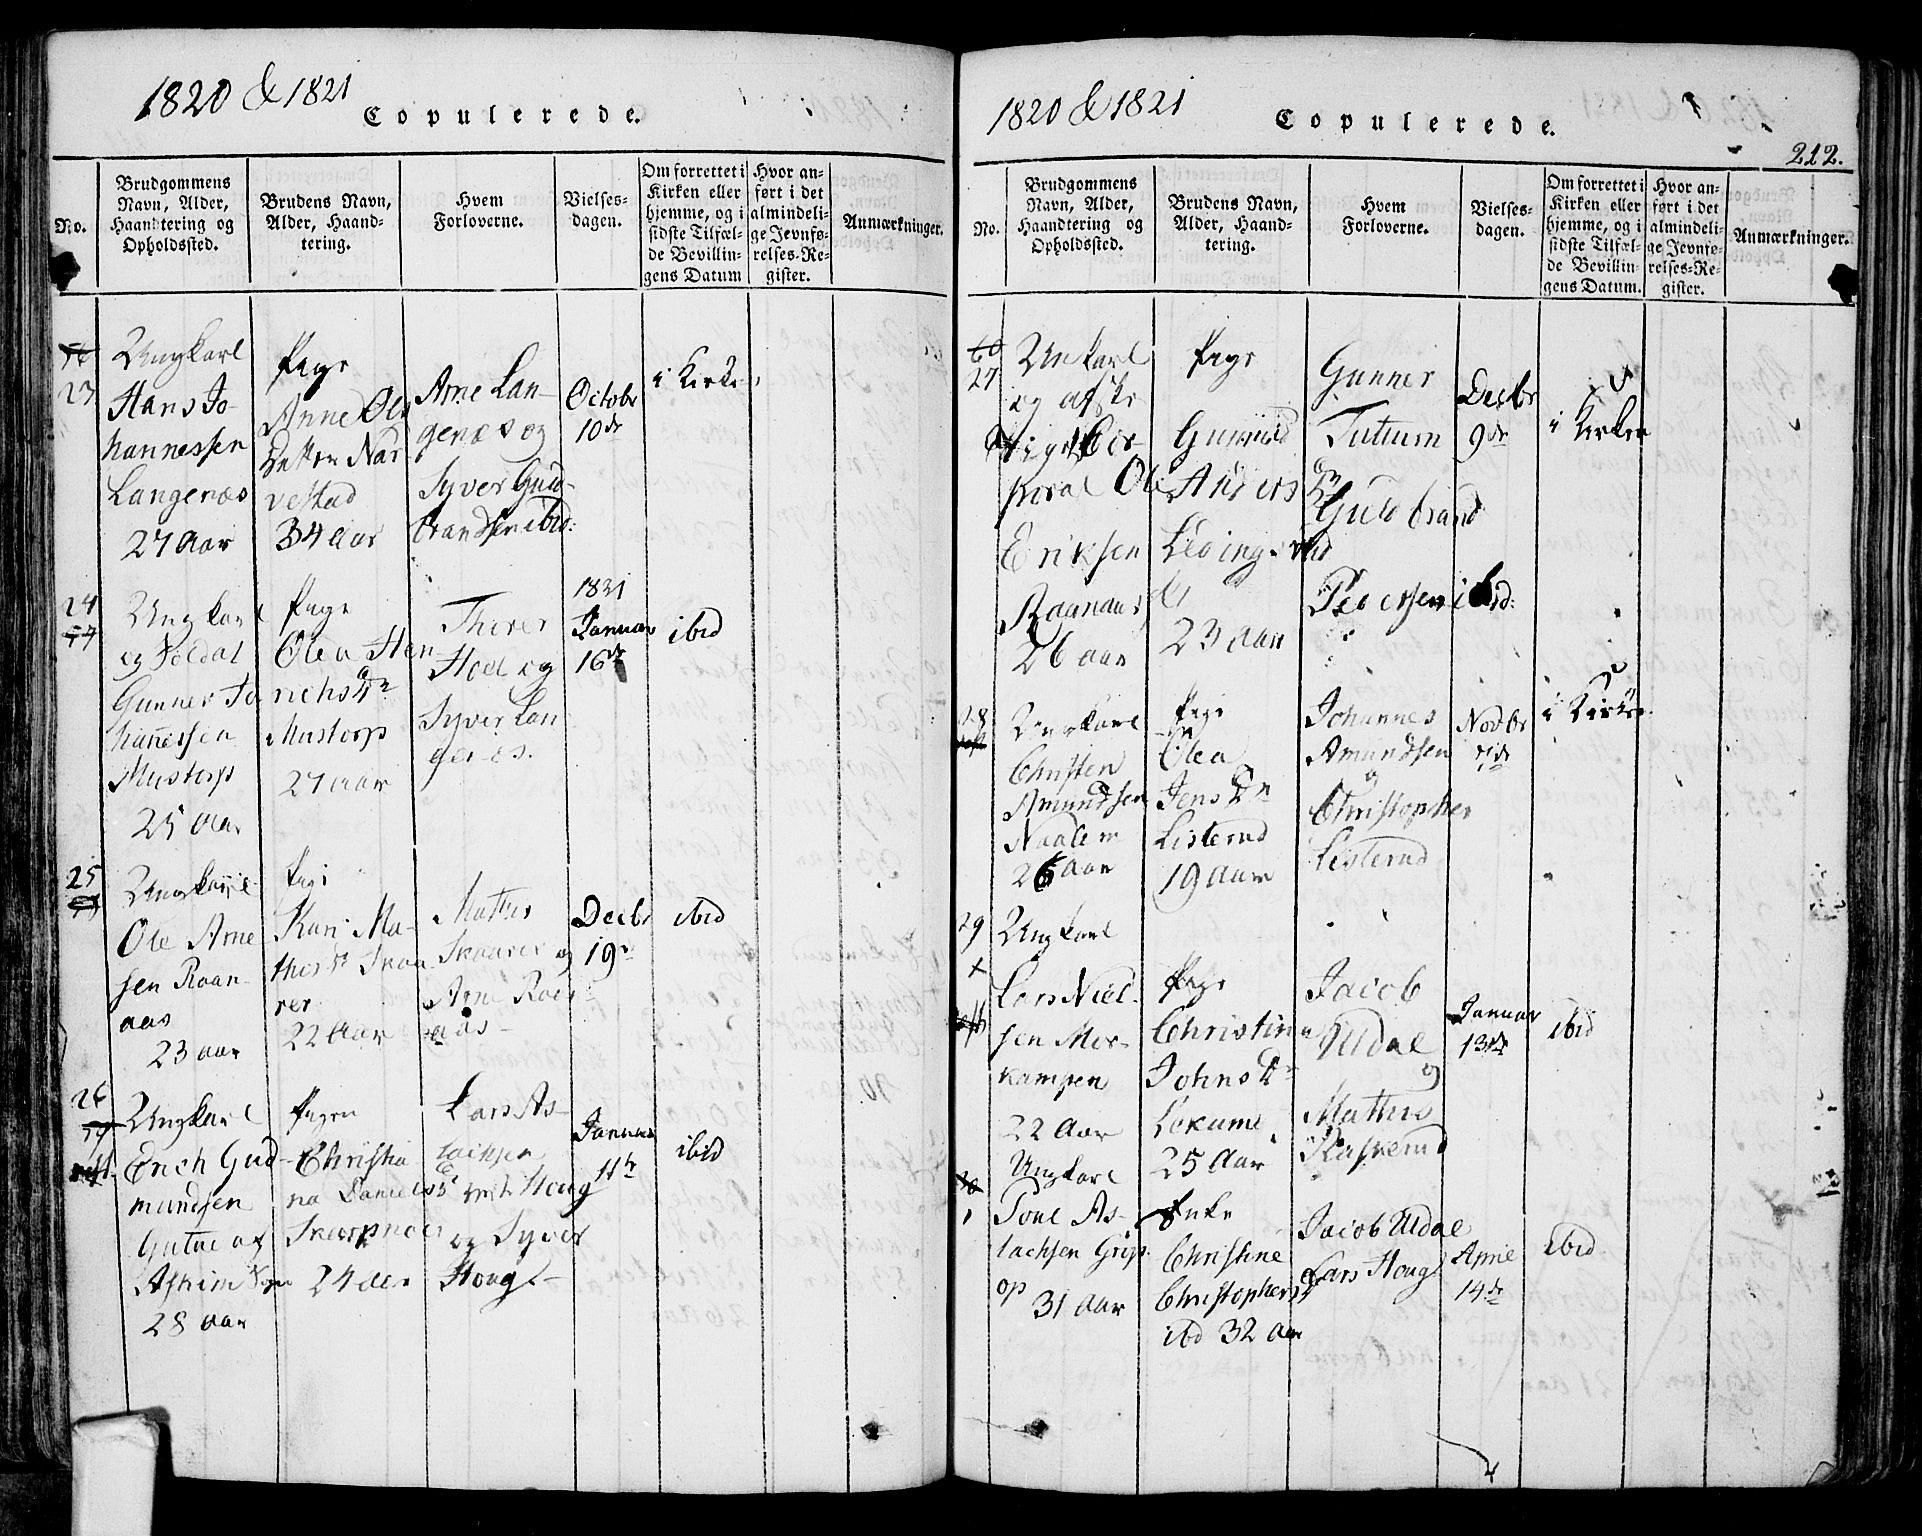 1820 & 1821
Copulerede.
No.
Brudgommens Navn, Alder, Haandtering og Opholdssted.
Brudens Navn, Alder, Haandtering.
Hvem Forloverne.
Vielsesdagen.
Om forrettet i Kirken eller hjemme, og i sidste Tilfælde Bevillingens Datum
Hvor anført i det almindelige Jevnførelses-Register.
Anmærkninger.
23
Ungkarl
Hans Jo-
hannessen
Langenæs
27 Aar
Pige
Anne Ols
Datter Nar-
vestad
34 Aar
Arne Lan-
genæs og
Syver Guld-
brandsen ibid:
Octobr
10de
i Kirke
24
Ungkarl
og Soldat
Gunner Jo
hannessen
Mustorp
25 Aar
Pige
Olea Hen-
richsDr
Mustorp
27 aar
Thorer
Hoel og
Syver Lan
genæs.
1821
Januar
16de
ibid
25
Ungkarl
Ole Arne
sen Raan-
aas
23 aar
Pige
Kari Ma-
thisDr Skaa-
rer
22 Aar
Mathis
Skaarer og
Arne Raan-
aas
Decbr
19de
ibid
26
Ungkarl
Erich Gud-
mundsen
Gutue af
Askim
28 aar
Pigen
Christia
na Daniels
Skorpnæs
24 aar
Lars As-
lachsen
Houg
og Syver
Houg
Januar
11te
ibid
1820 & 1821
Copulerede.
212.
No.
Brudgommens Navn, Alder, Haandtering og Opholdssted.
Brudens Navn, Alder, Haandtering.
Hvem Forloverne.
Vielsesdagen.
Om forrettet i Kirken eller hjemme, og i sidste Tilfælde Bevillingens Datum.
Hvor anført i det almindelige Jevnførelses-Register.
Anmærkninger.
27
Unkarl
og afske
Ole
Eriksen
Raanaas
26 aar
Pige
Gunnild
Anders Dr
23 aar
Gunner
Tutturn
og
Guldbrand
Pedersen ibid:
Decbr
9de
i Kirken
28
Ungkarl
Christen
Amundsen
Naalem
26 Aar
Pige
Olea
Jens Dr
Listerud
19 Aar
Johannes
Amundsen
og
Christopher
Listerud
Novbr
7de
i Kirke
29
Ungkarl
Lars Niel-
sen Mor-
kampen
22 Aar
Pige
Christina
Johns Dr
Lekume
25 Aar
Jacob
Uldal
og
Mathis
Raskerud
Januar
13de
ibid
1
Ungkarl
Poul As-
lachsen Grip-
op
31 Aar
Enke
Christine
Christophers Dr
ibd 32 Aar
Jacob Uldal
Lars Houg
April
14de
ibid